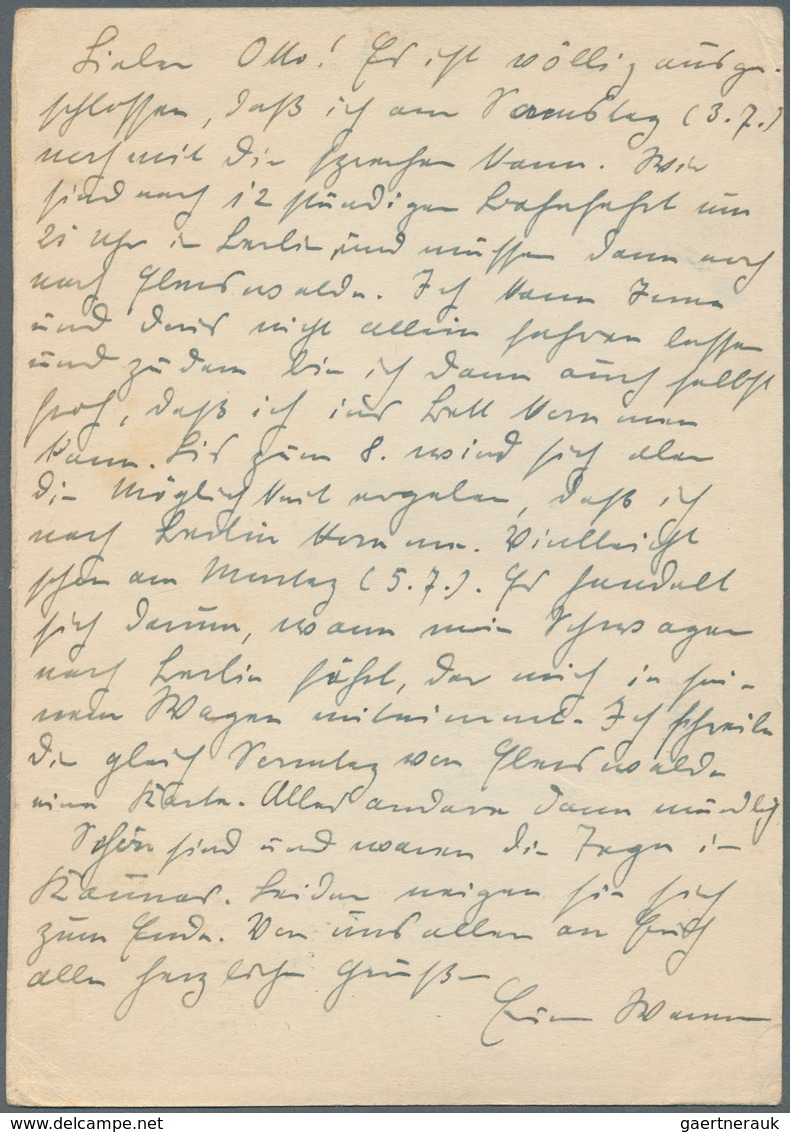 Lieber Otto! Es ist völlig ausge-
schlossen, daß ich am Samstag (3.7.)
noch mit Dir sprechen kann. Wir
sind nach 12 stündiger Bahnfahrt um
21 Uhr in Berlin, und müssen dann noch
nach
Ich kann
und nicht allein fahren lassen
und zudem bin ich dann auch selbst
froh, daß ich ins Bett kommen
kann. Bis zum 8. wird sich aber
die Möglichkeit ergeben, daß ich
nach Berlin komme. Vielleicht
schon am Montag (5.7.). Es handelt
sich darum, wann mein Schwager
nach Berlin fährt, der mich in sei-
nem Wagen mitnimmt. Ich schreibe
Dir gleich Sonntag von
eine Karte. Alles andere dann mündlich
Schön sind und waren die Tage in
Kaunas. Leider neigen sie sich
zum Ende. Von uns allen an Euch
alle herzliche Grüße
gaertnerauk / Delcampe.net